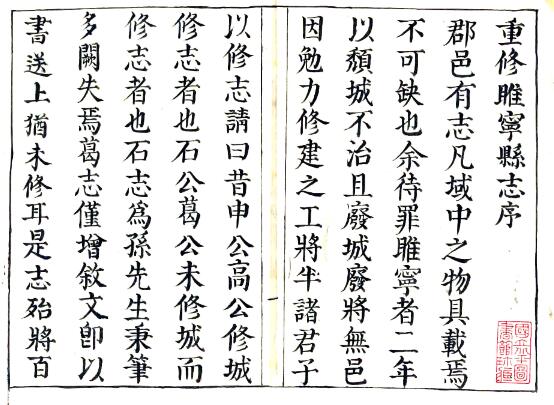 重修睢寧縣志序
郡邑有志凡域中之物具載焉
不可缺也余待罪睢寧者二年
以頽城不治且廢城廢將無邑
因勉力修建之工將半諸君子
以修志請曰昔申公高公修城
修志者也石公葛公未修城而
修志者也石志為孫先生秉筆
多闕失焉葛志僅增敘文卽以
書送上猶未修耳是志殆將百